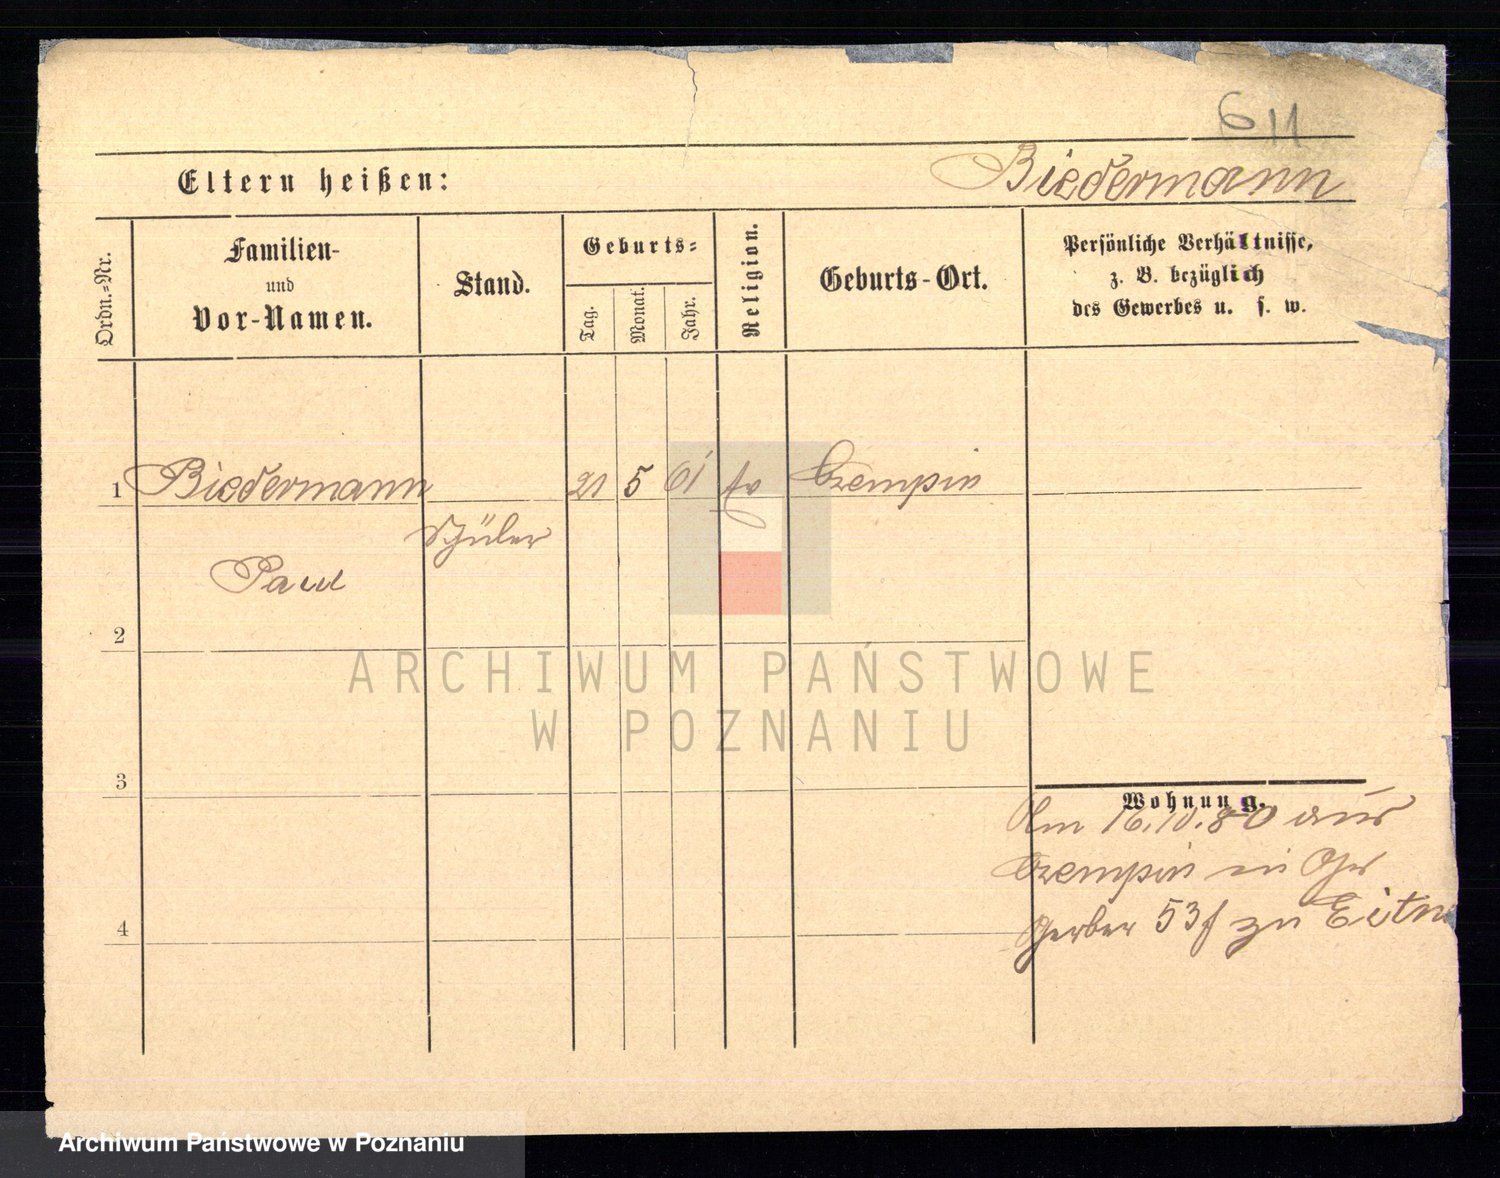 611
Eltern heißen: Biedermann
Ordn.-Nr.
Familien-
und
Vor-Namen.
Stand.
Geburts-
Tag.
Monat.
Jahr.
Religion.
Geburts-Ort.
Persönliche Verhältnisse,
z. B. bezüglich
des Gewerbes u. s. w.
1 Biedermann 21 5 61 Czempin
Schüler
Paul
2
3
4
Wohnung.
Am 16.10.80 aus
Czempin in
Gerber 53 f zu Eitn
ARCHIWUM PAŃSTWOWE
W POZNANIU
Archiwum Państwowe w Poznaniu